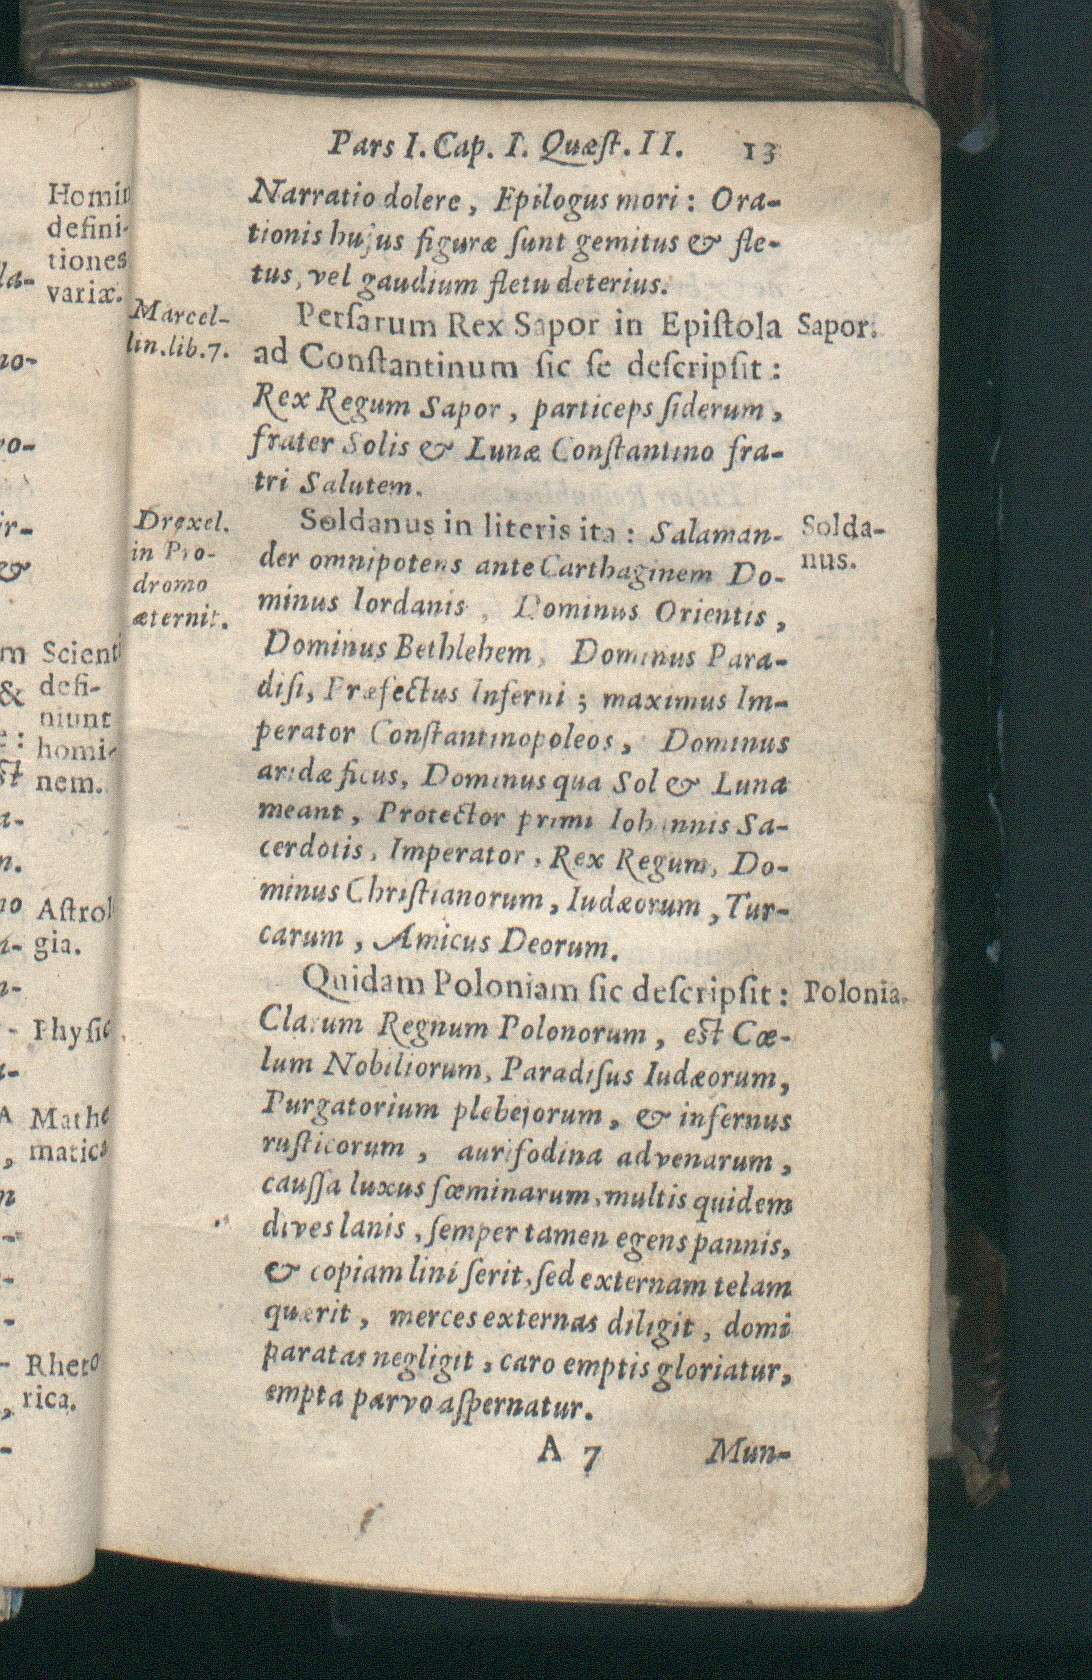 Pars I. Cap. I. Quæſt. II. 13
Narratio dolere, Epilogus mori: Ora-
tionis hujus figuræ ſunt gemitus & fle-
tus, vel gaudium fletu deterius.
Marcel-
lin. lib. 7.
Perſarum Rex Sapor in Epiſtola
Sapor.
ad Conſtantinum ſic ſe deſcripſit:
Rex Regum Sapor, particeps ſiderum,
frater Solis & Lunæ Conſtantino fra-
tri Salutem.
Drexel.
in Pro-
dromo
æternit.
Soldanus in literis ita: Salaman-
Solda-
nus.
der omnipotens ante Carthaginem Do-
minus Iordanis, Dominus Orientis,
Dominus Bethlehem, Dominus Para-
diſi, Præfectus Inferni; maximus Im-
perator Conſtantinopoleos, Dominus
aridæ ficus, Dominus qua Sol & Luna
meant, Protector primi Iohannis Sa-
cerdotis, Imperator, Rex Regum, Do-
minus Chriſtianorum, Iudæorum, Tur-
carum, Amicus Deorum.
Quidam Poloniam ſic deſcripſit:
Polonia.
Clarum Regnum Polonorum, eſt Cœ-
lum Nobiliorum, Paradiſus Iudæorum,
Purgatorium plebejorum, & infernus
ruſticorum, aurifodina advenarum,
cauſſa luxus fœminarum, multis quidem
dives lanis, ſemper tamen egens pannis,
& copiam lini ſerit, ſed externam telam
quærit, merces externas diligit, domi
paratas negligit, caro emptis gloriatur,
empta parvo aſpernatur.
A 7 Mun-
Homin
defini-
tiones
variæ.
Scient
defi-
niunt
homi-
nem.
Aſtrol
gia.
Phyſic
Mathe
matica
Rheto
rica.